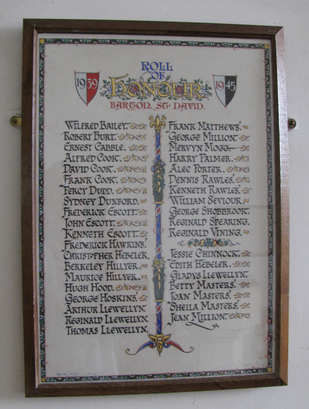 ROLL
OF
HONOUR
1939
1945
BARTON ST DAVID.
WILFRED BAILEY.
ROBERT BURT.
ERNEST CABBLE.
ALFRED COOK.
DAVID COOK.
FRANK COOK.
PERCY DUDD.
SYDNEY DUXFORD.
FREDERICK ESCOTT.
JOHN ESCOTT.
KENNETH ESCOTT.
FREDERICK HAWKINS.
CHRISTOPHER HEBELER.
BERKELEY HILLYER.
MAURICE HILLYER.
HUGH HOOD.
GEORGE HOSKINS.
ARTHUR LLEWELLYN.
REGINALD LLEWELLYN.
THOMAS LLEWELLYN.
FRANK MATTHEWS.
GEORGE MILLION.
MERVYN MOGG.
HARRY PALMER.
ALEC PORTER.
DENNIS RAWLES.
KENNETH RAWLES.
WILLIAM SEVIOUR.
GEORGE SHOBROOK.
REGINALD SPEARING.
REGINALD VINING.
JESSIE CHINNOCK.
EDITH HEBELER.
GLADYS LLEWELLYN.
BETTY MASTERS.
JOAN MASTERS.
SHEILA MASTERS.
JEAN MILLION.